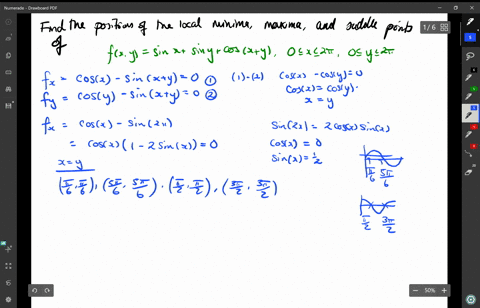 Numerade - Drawboard PDF
Find the positions of the local minima, maxima, and saddle points
of
1 / 6
f(x,y) = sin x + sin y + cos(x+y), 0≤x≤2π, 0≤y≤2π
fx = cos(x) - sin(x+y) = 0 ①
(1)-(2) cos(x) - cos(y) = 0
fy = cos(y) - sin(x+y) = 0 ②
cos(x) = cos(y).
x = y
fx = cos(x) - sin(2x)
sin(2x) = 2cos(x)sin(x)
= cos(x)(1 - 2sin(x)) = 0
cos(x) = 0
x=y
sin(x) = 1/2
π/6 5π/6
(π/6, π/6), (5π/6, 5π/6), (π/2, π/2), (3π/2, 3π/2)
π/2 3π/2
50%